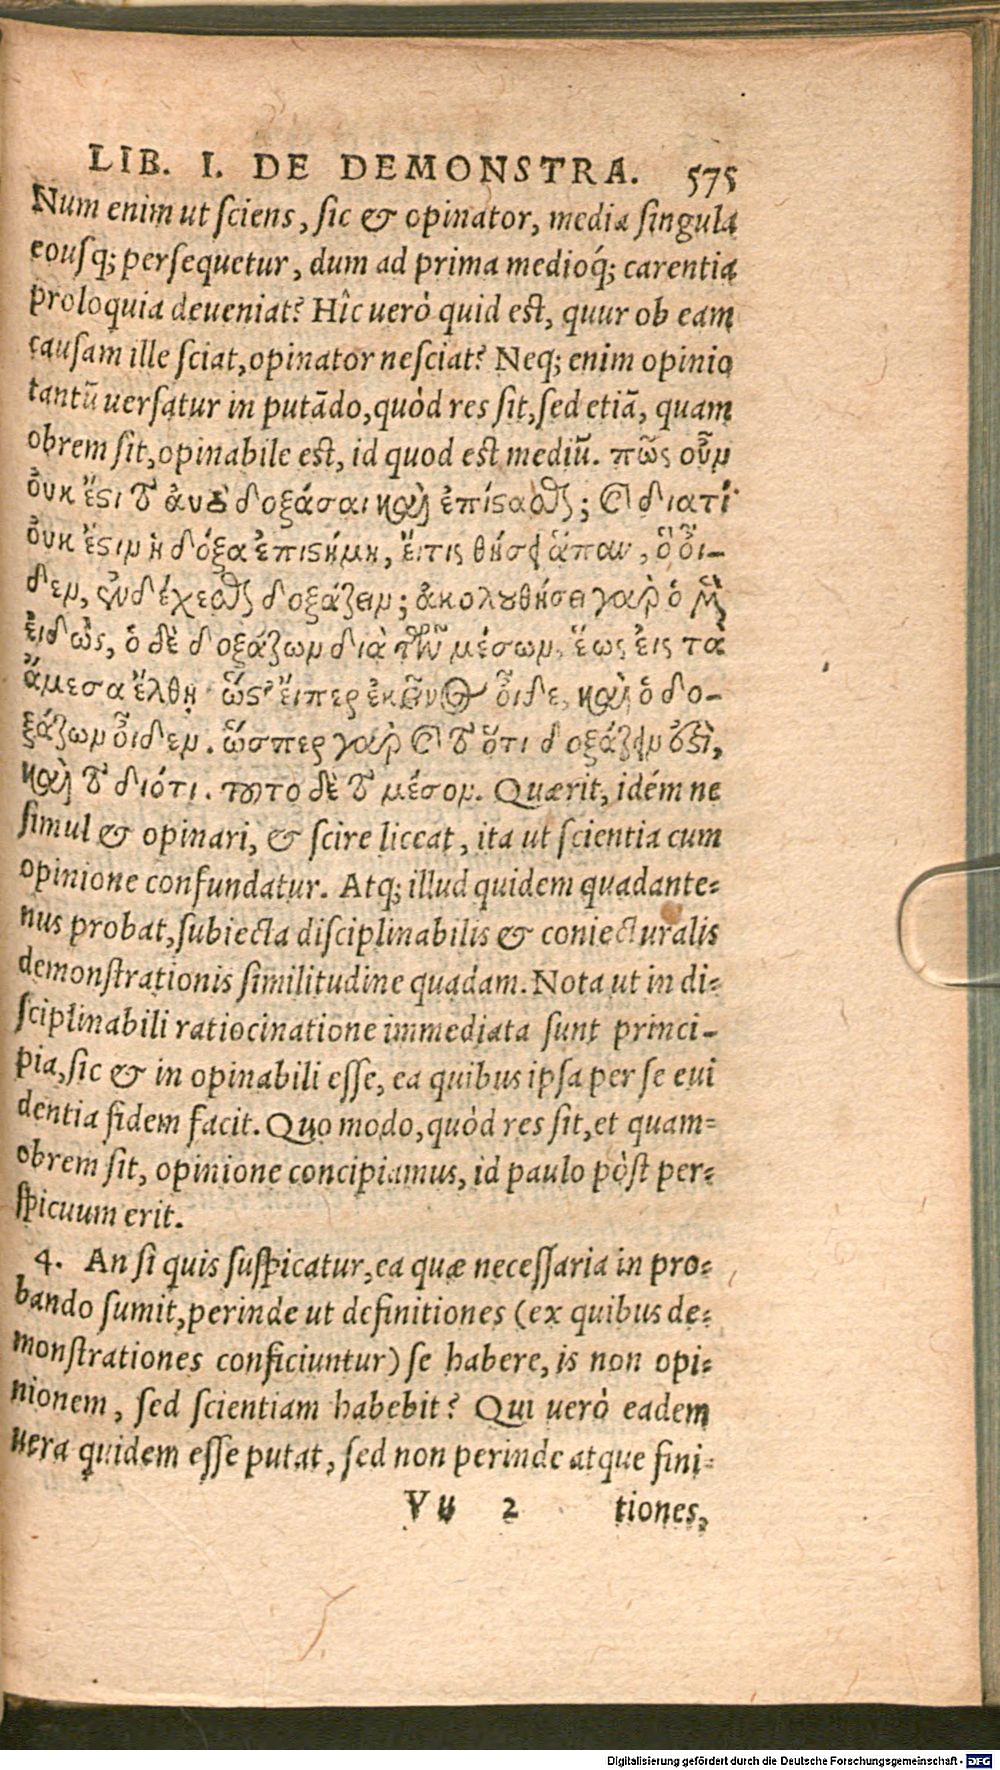 LIB. I. DE DEMONSTRA. 575
Num enim ut sciens, sic & opinator, media singula
eousq; persequetur, dum ad prima medioq́; carentia
proloquia deueniat? Hîc uerò quid est, quur ob eam
causam ille sciat, opinator nesciat? Neq; enim opinio
tantũ uersatur in putãdo, quòd res sit, sed etiã, quam
obrem sit, opinabile est, id quod est mediũ. πῶς οὖν
οὐκ ἔστι τὸ αὐτὸ δοξάσαι καὶ ἐπίστασθαι; καὶ διατί
οὐκ ἔστιν ἡ δόξα ἐπιστήμη, εἴ τις θήσει ἅπαν, ὃ οἶ-
δεν, ἐνδέχεσθαι δοξάζειν; ἀκολουθήσει γὰρ ὁ μὲν
εἰδὼς, ὁ δὲ δοξάζων διὰ τῶν μέσων, ἕως εἰς τὰ
ἄμεσα ἔλθῃ· ὥστ' εἴπερ ἐκεῖνος οἶδε, καὶ ὁ δο-
ξάζων οἶδεν. ὥσπερ γὰρ καὶ τὸ ὅτι δοξάζειν ἔστι,
καὶ τὸ διότι. τοῦτο δὲ τὸ μέσον. Quærit, idém ne
simul & opinari, & scire liceat, ita ut scientia cum
opinione confundatur. Atq; illud quidem quadante-
nus probat, subiecta disciplinabilis & coniecturalis
demonstrationis similitudine quadam. Nota ut in di-
sciplinabili ratiocinatione immediata sunt princi-
pia, sic & in opinabili esse, ea quibus ipsa per se eui
dentia fidem facit. Quo modo, quòd res sit, et quam-
obrem sit, opinione concipiamus, id paulo pòst per-
spicuum erit.
4. An si quis suspicatur, ea quæ necessaria in pro-
bando sumit, perinde ut definitiones (ex quibus de-
monstrationes conficiuntur) se habere, is non opi-
nionem, sed scientiam habebit? Qui uerò eadem
uera quidem esse putat, sed non perinde atque fini-
Vu 2 tiones,
Digitalisierung gefördert durch die Deutsche Forschungsgemeinschaft - DFG